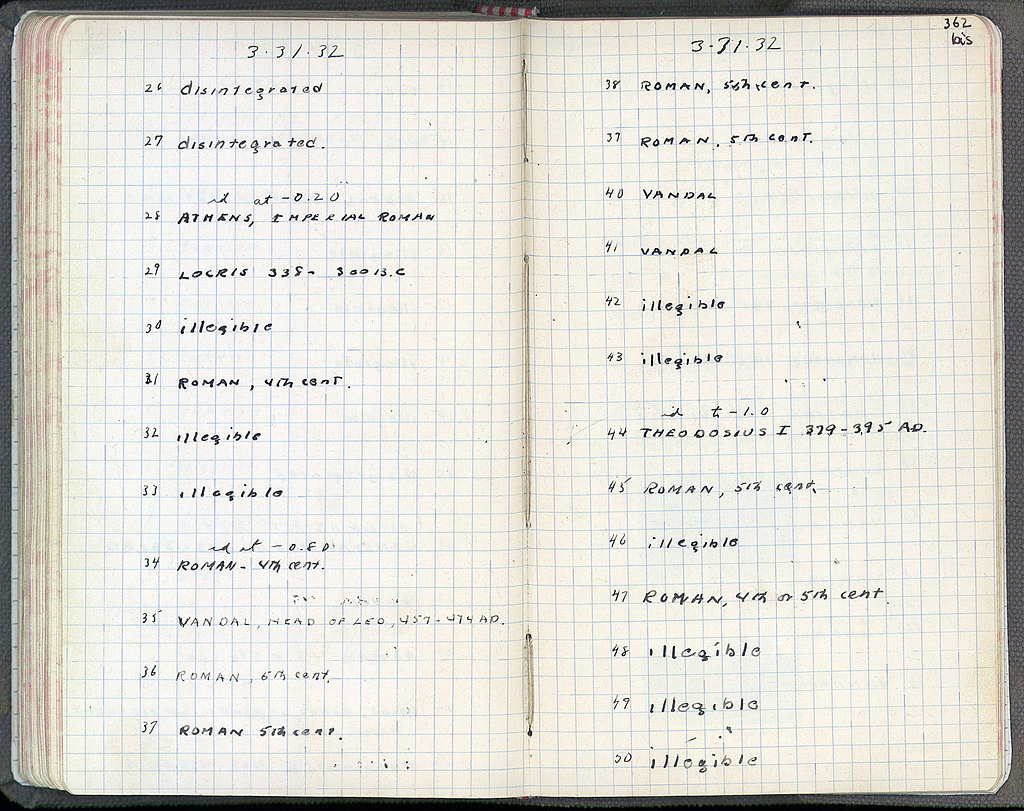 3·31·32
26 disintegrated
27 disintegrated.
id at -0.20
28 ATHENS, IMPERIAL ROMAN
29 LOCRIS 338- 300 B.C
30 illegible
31 ROMAN, 4th cent.
32 illegible
33 illegible
id at -0.80
34 ROMAN- 4th cent.
35 VANDAL, HEAD OF LEO, 457-474 AD.
36 ROMAN, 5th cent.
37 ROMAN 5th cent.
362
bis
3·31·32
38 ROMAN, 5th cent.
39 ROMAN, 5th cent.
40 VANDAL
41 VANDAL
42 illegible
43 illegible
id t -1.0
44 THEODOSIUS I 379-395 AD.
45 ROMAN, 5th cent.
46 illegible
47 ROMAN, 4th or 5th cent.
48 illegible
49 illegible
50 illegible